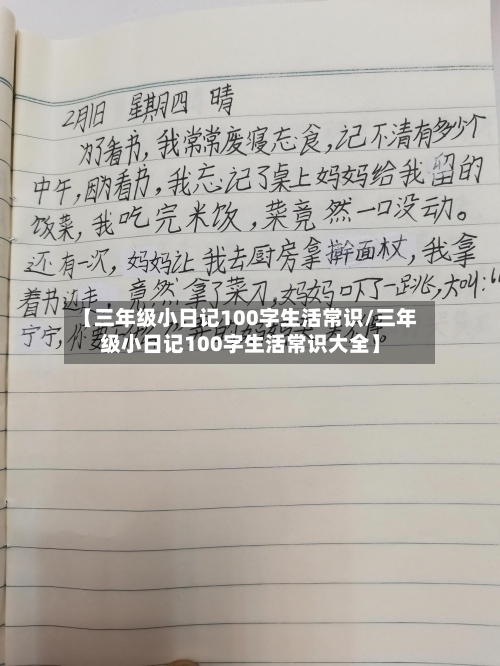 2月1日 星期四 晴
为了看书,我常常废寝忘食,记不清有多少个
中午,因为看书,我忘记了桌上妈妈给我留的
饭菜,我吃完米饭,菜竟然一口没动。
还有一次,妈妈让我去厨房拿擀面杖,我拿
着书边走,竟然拿了菜刀,妈妈吓了一跳,大叫:“
宁宁,你要
【三年级小日记100字生活常识/三年
级小日记100字生活常识大全】